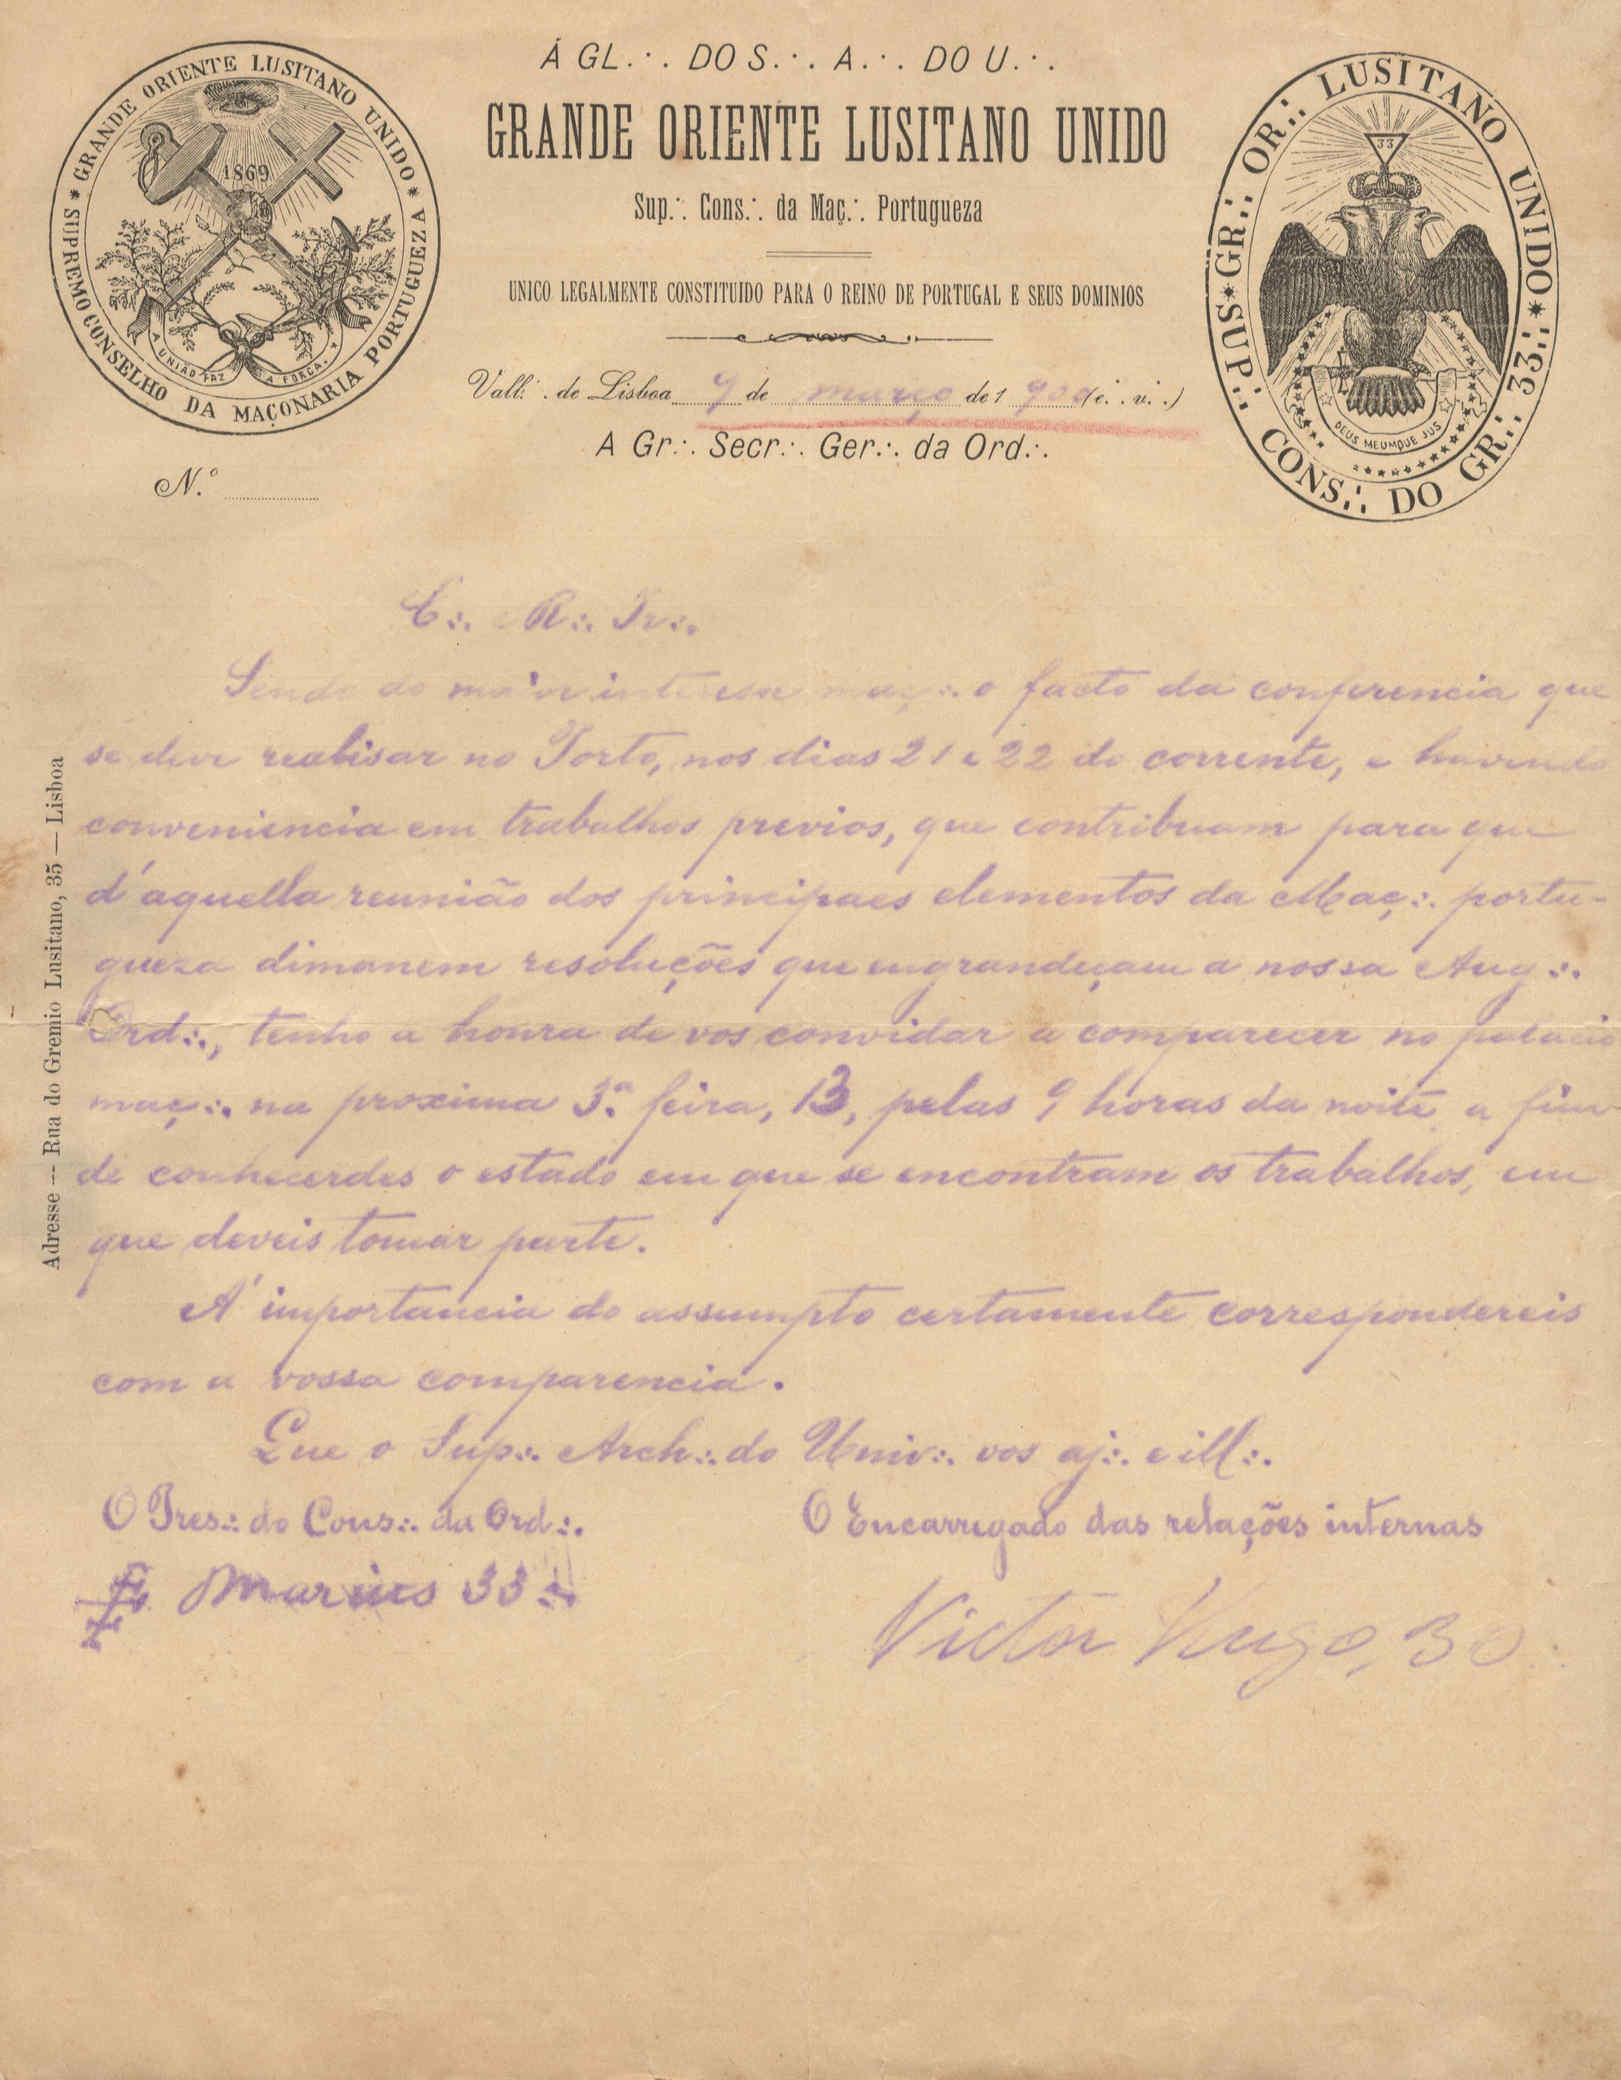 Á GL.·. DO S.·. A.·. DO U.·.
GRANDE ORIENTE LUSITANO UNIDO
Sup.·. Cons.·. da Maç.·. Portugueza
UNICO LEGALMENTE CONSTITUIDO PARA O REINO DE PORTUGAL E SEUS DOMINIOS
Vall.·. de Lisboa 9 de março de 1900 (e.·. v.·.)
A Gr.·. Secr.·. Ger.·. da Ord.·.
N.º
GRANDE ORIENTE LUSITANO UNIDO * SUPREMO CONSELHO DA MAÇONARIA PORTUGUEZA *
1869
A UNIÃO FAZ A FORÇA
SUP.·. CONS.·. DO GR.·. 33.·. * GR.·. OR.·. LUSITANO UNIDO *
33
DEUS MEUMQUE JUS
Adresse — Rua do Gremio Lusitano, 35 — Lisboa
C.·. R.·. Ir.·.
Sendo do maior interesse maç.·. o facto da conferencia que
se deve realisar no Porto, nos dias 21 e 22 do corrente, e havendo
conveniencia em trabalhos previos, que contribuam para que
d'aquella reunião dos principaes elementos da Maç.·. portu-
gueza dimanem resoluções que engrandeçam a nossa Aug.·.
Ord.·., tenho a honra de vos convidar a comparecer no palacio
maç.·. na proxima 3.ª feira, 13, pelas 9 horas da noite a fim
de conhecerdes o estado em que se encontram os trabalhos, em
que deveis tomar parte.
Á importancia do assumpto certamente correspondereis
com a vossa comparencia.
Que o Sup.·. Arch.·. do Univ.·. vos aj.·. e ill.·.
O Pres.·. do Cons.·. da Ord.·.
Marius 33.·.
O Encarregado das relações internas
Victor Hugo, 30.·.